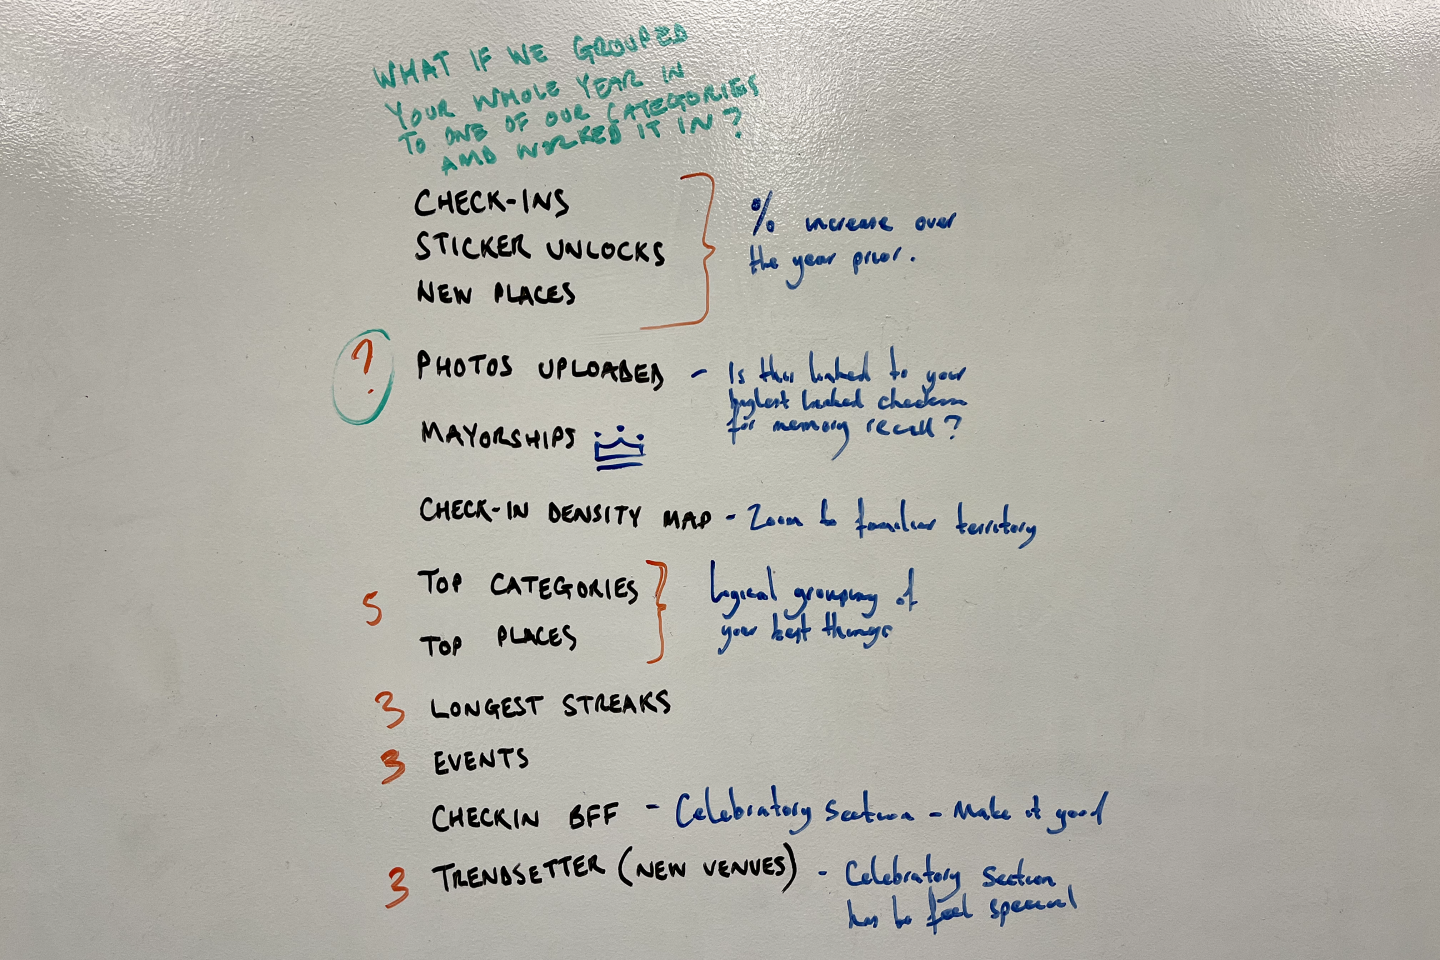 WHAT IF WE GROUPED
YOUR WHOLE YEAR IN
TO ONE OF OUR CATEGORIES
AND WORKED IT IN?
CHECK-INS
STICKER UNLOCKS
NEW PLACES
% increase over
the year prior.
?
PHOTOS UPLOADED - Is this linked to your
highest liked checkin
for memory recall?
MAYORSHIPS
CHECK-IN DENSITY MAP - Zoom to familiar territory
5
TOP CATEGORIES
TOP PLACES
Logical grouping of
your best things
3 LONGEST STREAKS
3 EVENTS
CHECKIN BFF - Celebratory Section - Make it good
3 TRENDSETTER (NEW VENUES) - Celebratory Section
has to feel special